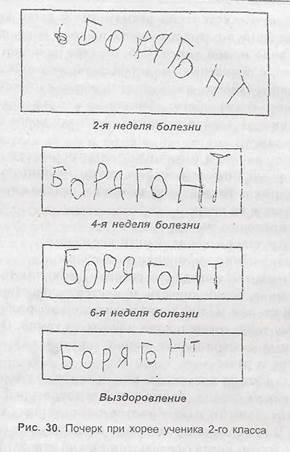 Б БОРЯ ГОНТ
2-я неделя болезни
БОРЯ ГОНТ
4-я неделя болезни
БОРЯ ГОНТ
6-я неделя болезни
БОРЯ ГОНТ
Выздоровление
Рис. 30. Почерк при хорее ученика 2-го класса